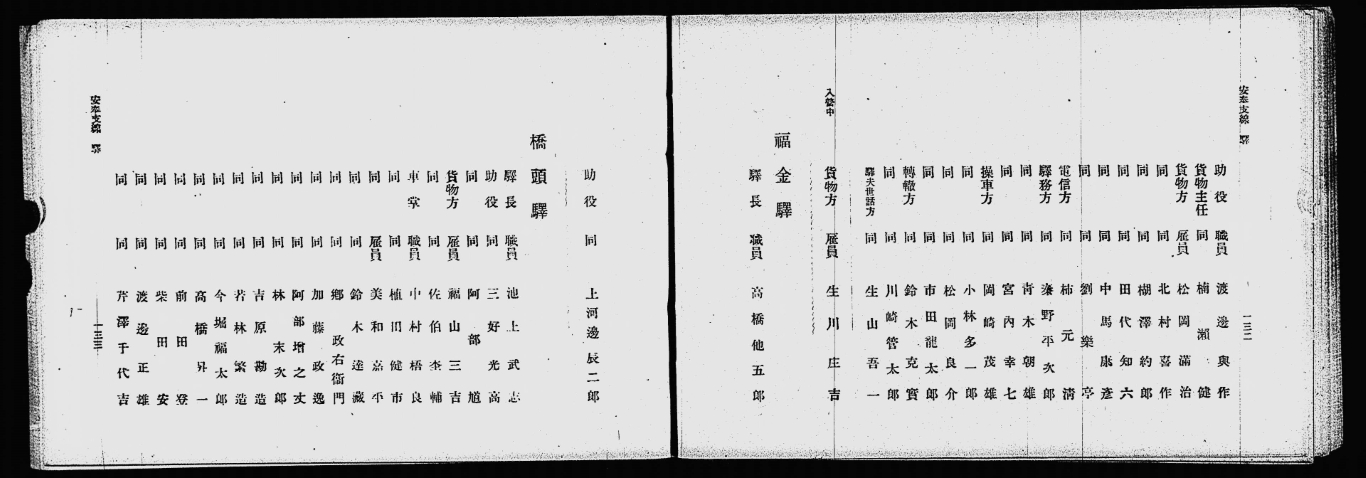 安奉支線 驛
一三二
助役 職員 渡邊與作
貨物主任 同 楠瀬健
貨物方 雇員 松岡滿治
同 同 北村喜作
同 同 楜澤約郎
同 同 田代知六
同 同 中馬康彥
同 同 劉樂亭
電信方 同 柿元清
驛務方 同 秦野平次郎
同 同 青木朝雄
同 同 宮內幸七
操車方 同 岡崎茂雄
同 同 小林多一郎
同 同 松岡良介
同 同 市田龍太郎
轉轍方 同 鈴木克實
同 同 川崎管太郎
驛夫世話方 同 生山吾一
入營中 貨物方 雇員 生川庄吉
福金驛
驛長 職員 高橋他五郎
助役 同 上河邊辰二郎
橋頭驛
驛長 職員 池上武志
助役 同 三好光高
同 同 阿部馗
貨物方 雇員 福山三吉
同 同 佐伯奎輔
車掌 職員 中村梧良
同 同 植田健市
同 雇員 美和嘉平
同 同 鈴木達藏
同 同 鄉政右衞門
同 同 加藤政逸
同 同 阿部增之丈
同 同 林末次郎
同 同 吉原勘造
同 同 若林繁造
同 同 今堀福太郎
同 同 高橋昇一
同 同 前田登
同 同 柴田安
同 同 渡邊正雄
同 同 芹澤千代吉
安奉支線 驛
一三三